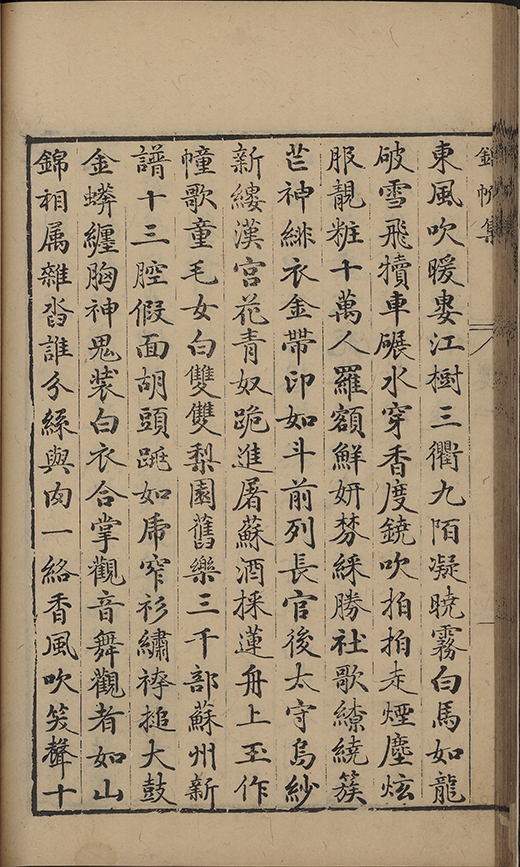 錦帆集
東風吹暖婁江樹三衢九陌凝曉霧白馬如龍
破雪飛犢車碾水穿香度鐃吹拍拍走煙塵炫
服靚粧十萬人羅額鮮妍棼綵勝社歌繚繞簇
芒神緋衣金帶印如斗前列長官後太守烏紗
新縷漢宮花青奴跪進屠蘇酒採蓮舟上玉作
幢歌童毛女白雙雙梨園舊樂三千部蘇州新
譜十三腔假面胡頭跳如虎窄衫繡袴搥大鼓
金蟒纏胸神鬼裝白衣合掌觀音舞觀者如山
錦相属雜沓誰分絲與肉一絡香風吹笑聲十